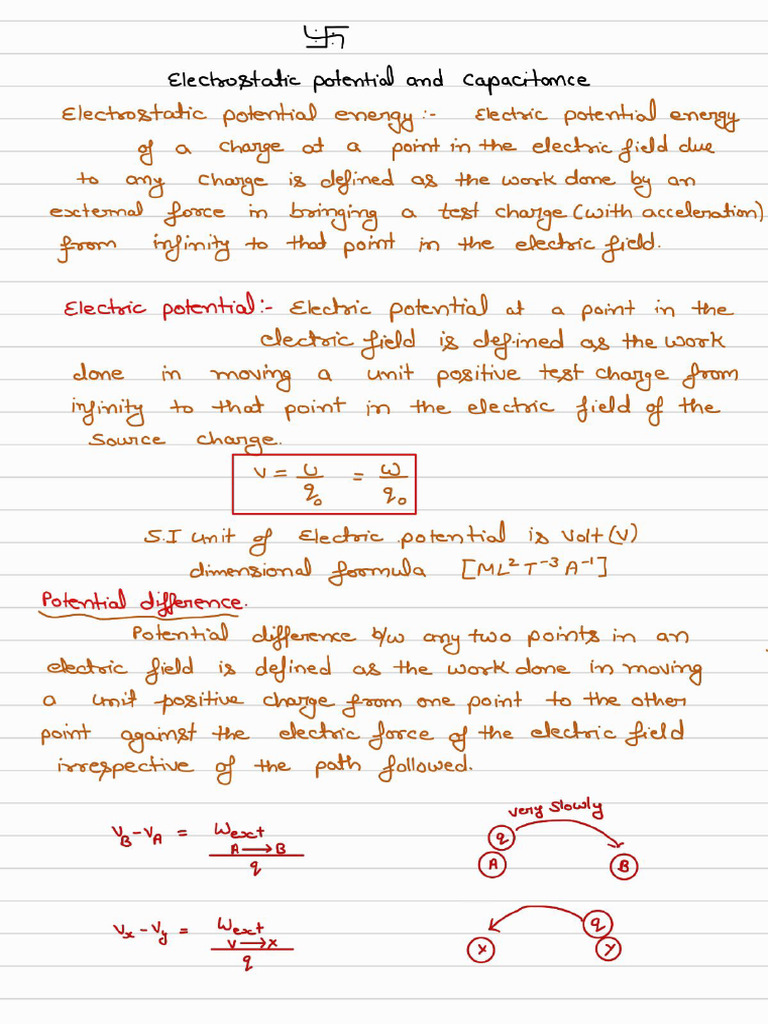 Electrostatic potential and Capacitance
Electrostatic potential energy :- Electric potential energy
of a charge at a point in the electric field due
to any charge is defined as the work done by an
external force in bringing a test charge (with acceleration)
from infinity to that point in the electric field.
Electric potential :- Electric potential at a point in the
electric field is defined as the work
done in moving a unit positive test charge from
infinity to that point in the electric field of the
source charge.
V = U/q₀ = W/q₀
S.I unit of Electric potential is volt (V)
dimensional formula [ML²T⁻³A⁻¹]
Potential difference.
Potential difference b/w any two points in an
electric field is defined as the work done in moving
a unit positive charge from one point to the other
point against the electric force of the electric field
irrespective of the path followed.
very slowly
V_B - V_A = W_ext A→B / q
q
A B
V_x - V_y = W_ext v→x / q
q
x y